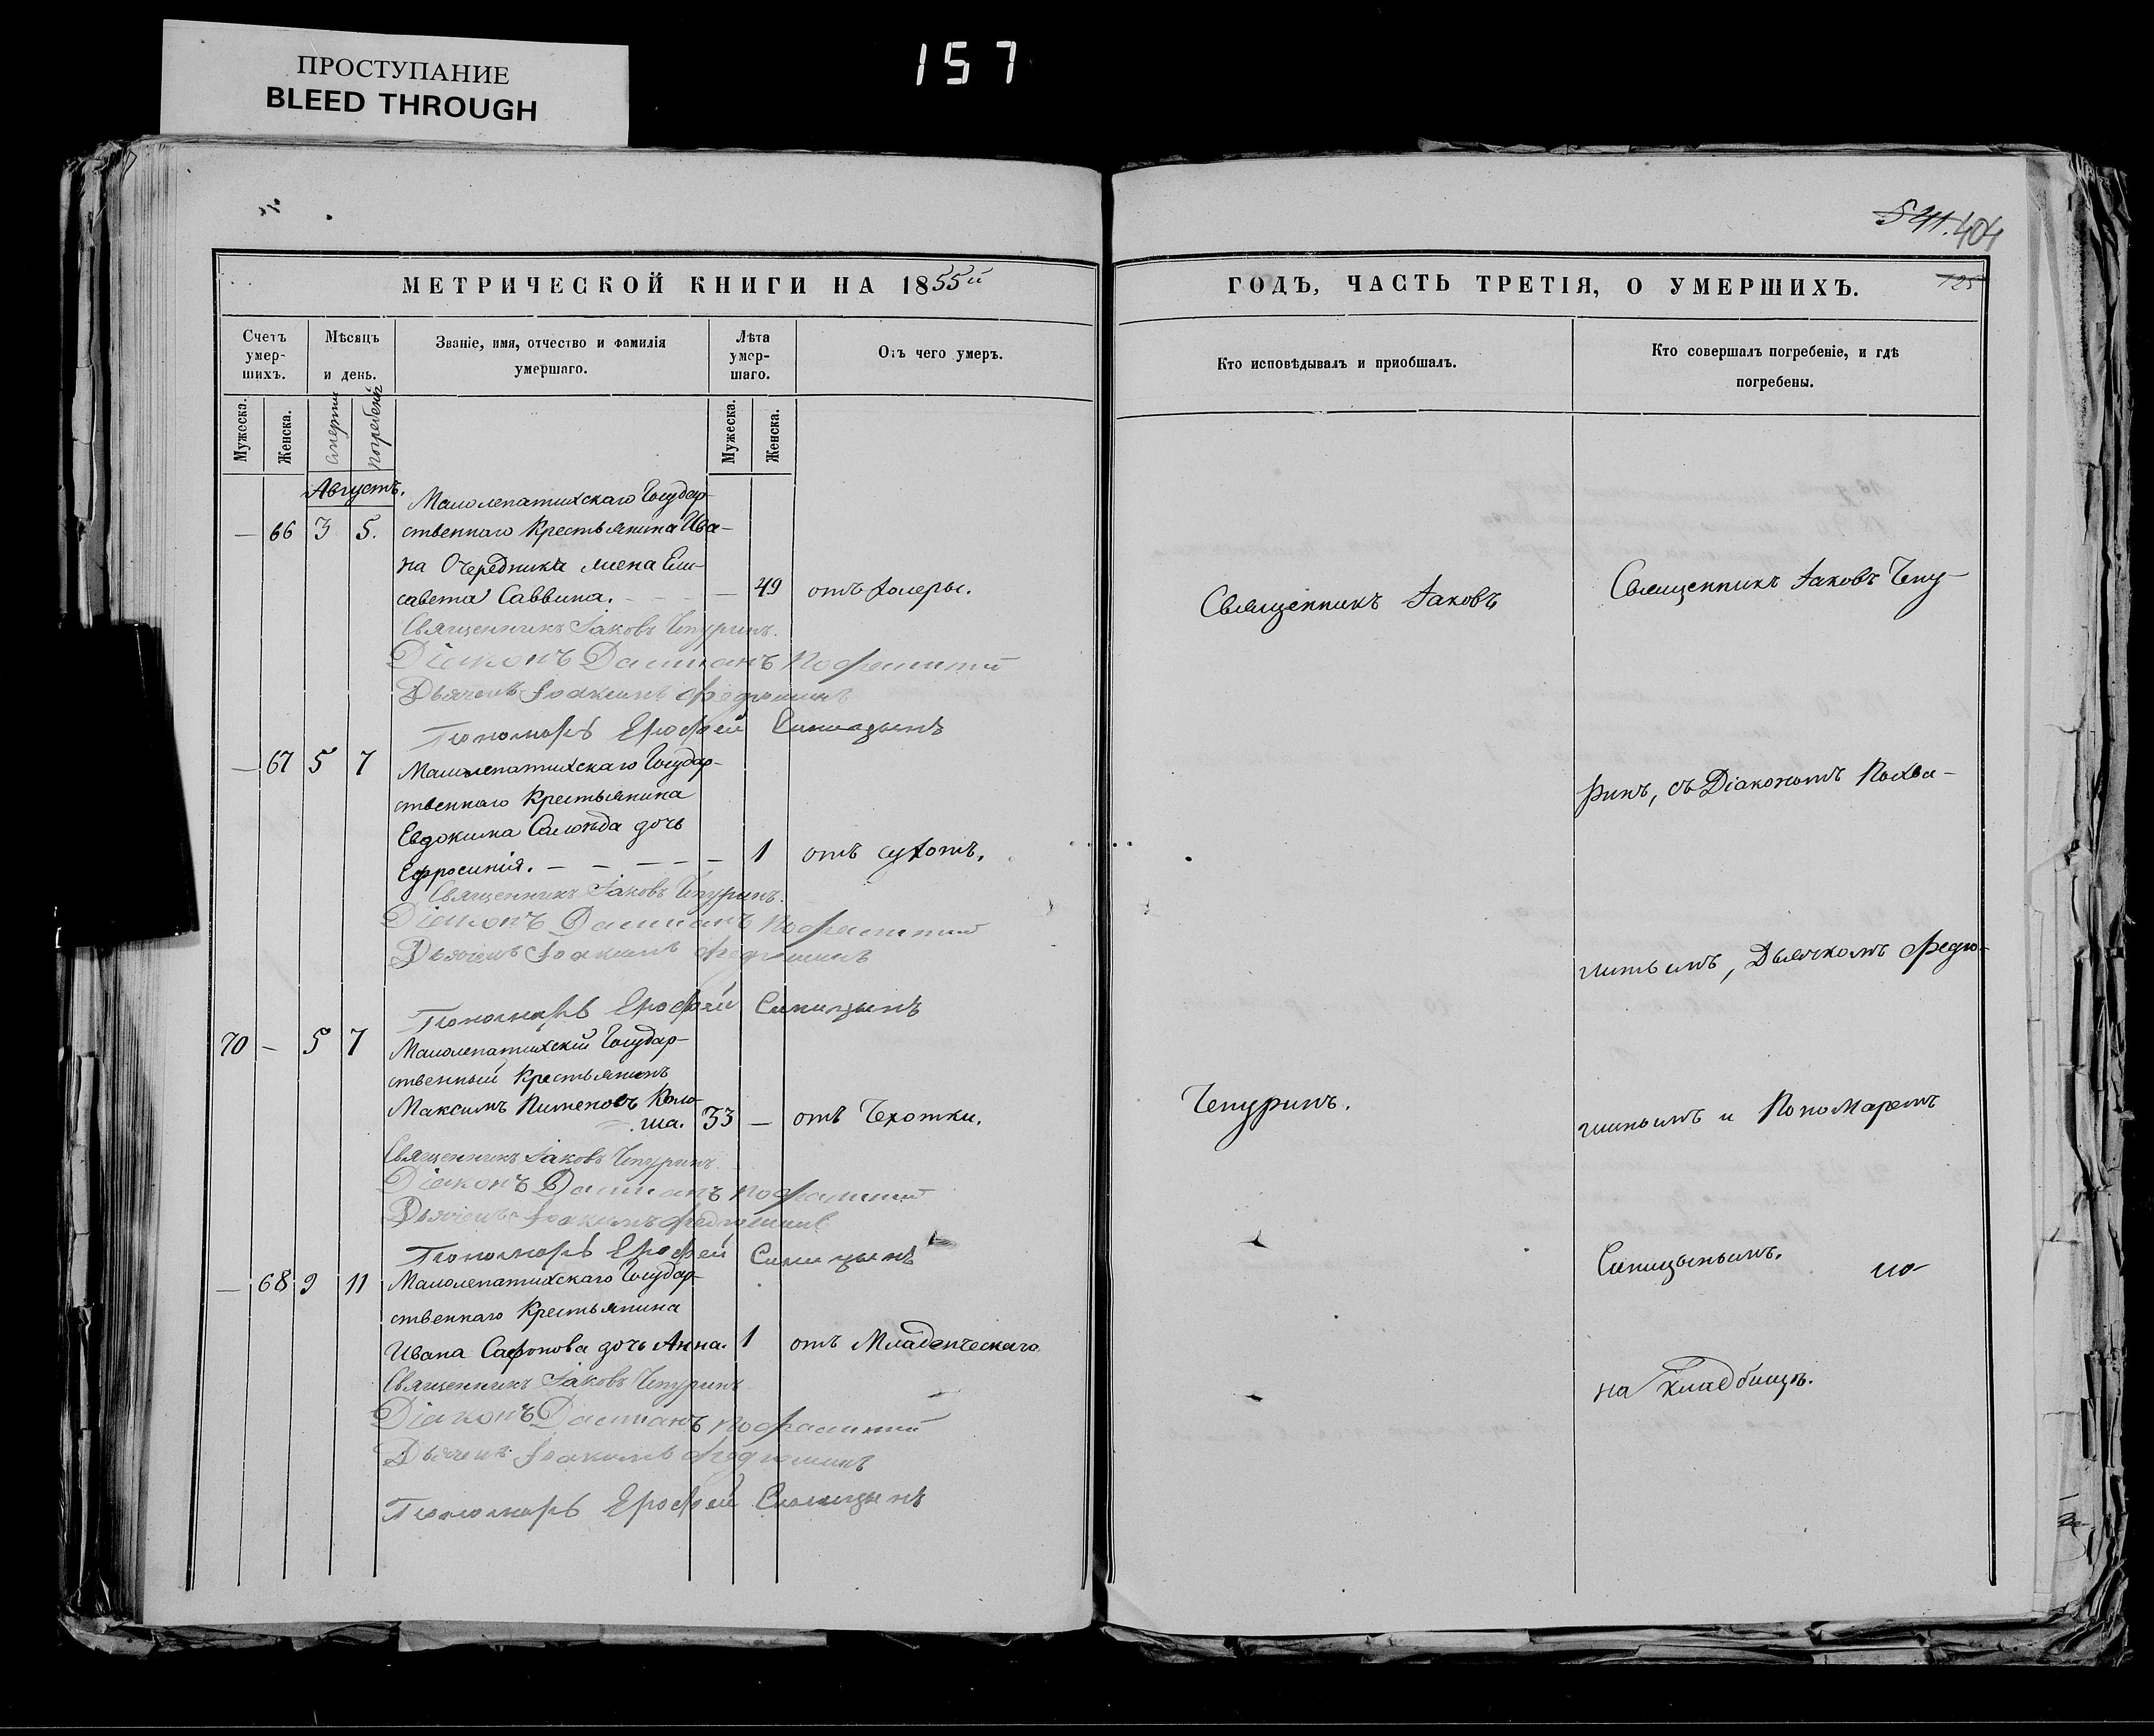 ПРОСТУПАНИЕ
BLEED THROUGH
157
541. 404
МЕТРИЧЕСКОЙ КНИГИ НА 1855й
ГОДЪ, ЧАСТЬ ТРЕТІЯ, О УМЕРШИХЪ.
125
Счетъ умер-шихъ.
Мѣсяцъ и день.
Званіе, имя, отчество и фамилія умершаго.
Лѣта умер-шаго.
Отъ чего умеръ.
Кто исповѣдывалъ и пріобшалъ.
Кто совершалъ погребеніе, и гдѣ погребены.
Мужеска.
Женска.
Смерти
погребенія
Мужеска.
Женска.
Августъ.
Малолепатихскаго Государ-
— 66 3 5. ственнаго Крестьянина Ива-
на Очередника жена Ели-
савета Саввина. — 49 отъ холеры.
Священникъ Іаковъ Чепуринъ.
Діаконъ Даміанъ Похвалитый
Дьячекъ Іоакимъ Федюшинъ
Пономарь Ерофей Синицынъ
— 67 5 7 Малолепатихскаго Государ-
ственнаго Крестьянина
Евдокима дочь
Ефросинія. — — — — — 1 отъ сухотъ.
Священникъ Іаковъ Чепуринъ.
Діаконъ Даміанъ Похвалитый
Дьячекъ Іоакимъ Федюшинъ
Пономарь Ерофей Синицынъ
70 — 5 7 Малолепатихскій Государ-
ственный Крестьянинъ
Максимъ Пименовъ Кало-
ша. 33 — отъ Чехотки.
Священникъ Іаковъ Чепуринъ
Діаконъ Даміанъ Похвалитый
Дьячекъ Іоакимъ Федюшинъ
Пономарь Ерофей Синицынъ
— 68 9 11 Малолепатихскаго Государ-
ственнаго Крестьянина
Ивана Сафонова дочь Анна. 1 отъ Младенческаго
Священникъ Іаковъ Чепуринъ
Діаконъ Даміанъ Похвалитый
Дьячекъ Іоакимъ Федюшинъ
Пономарь Ерофей Синицынъ
Священникъ Іаковъ
Чепуринъ.
Священникъ Іаковъ Чепу-
ринъ, съ Діакономъ Похва-
литымъ, Дьячкомъ Федю-
шинымъ и Пономаремъ
Синицынымъ.
на кладбищѣ.